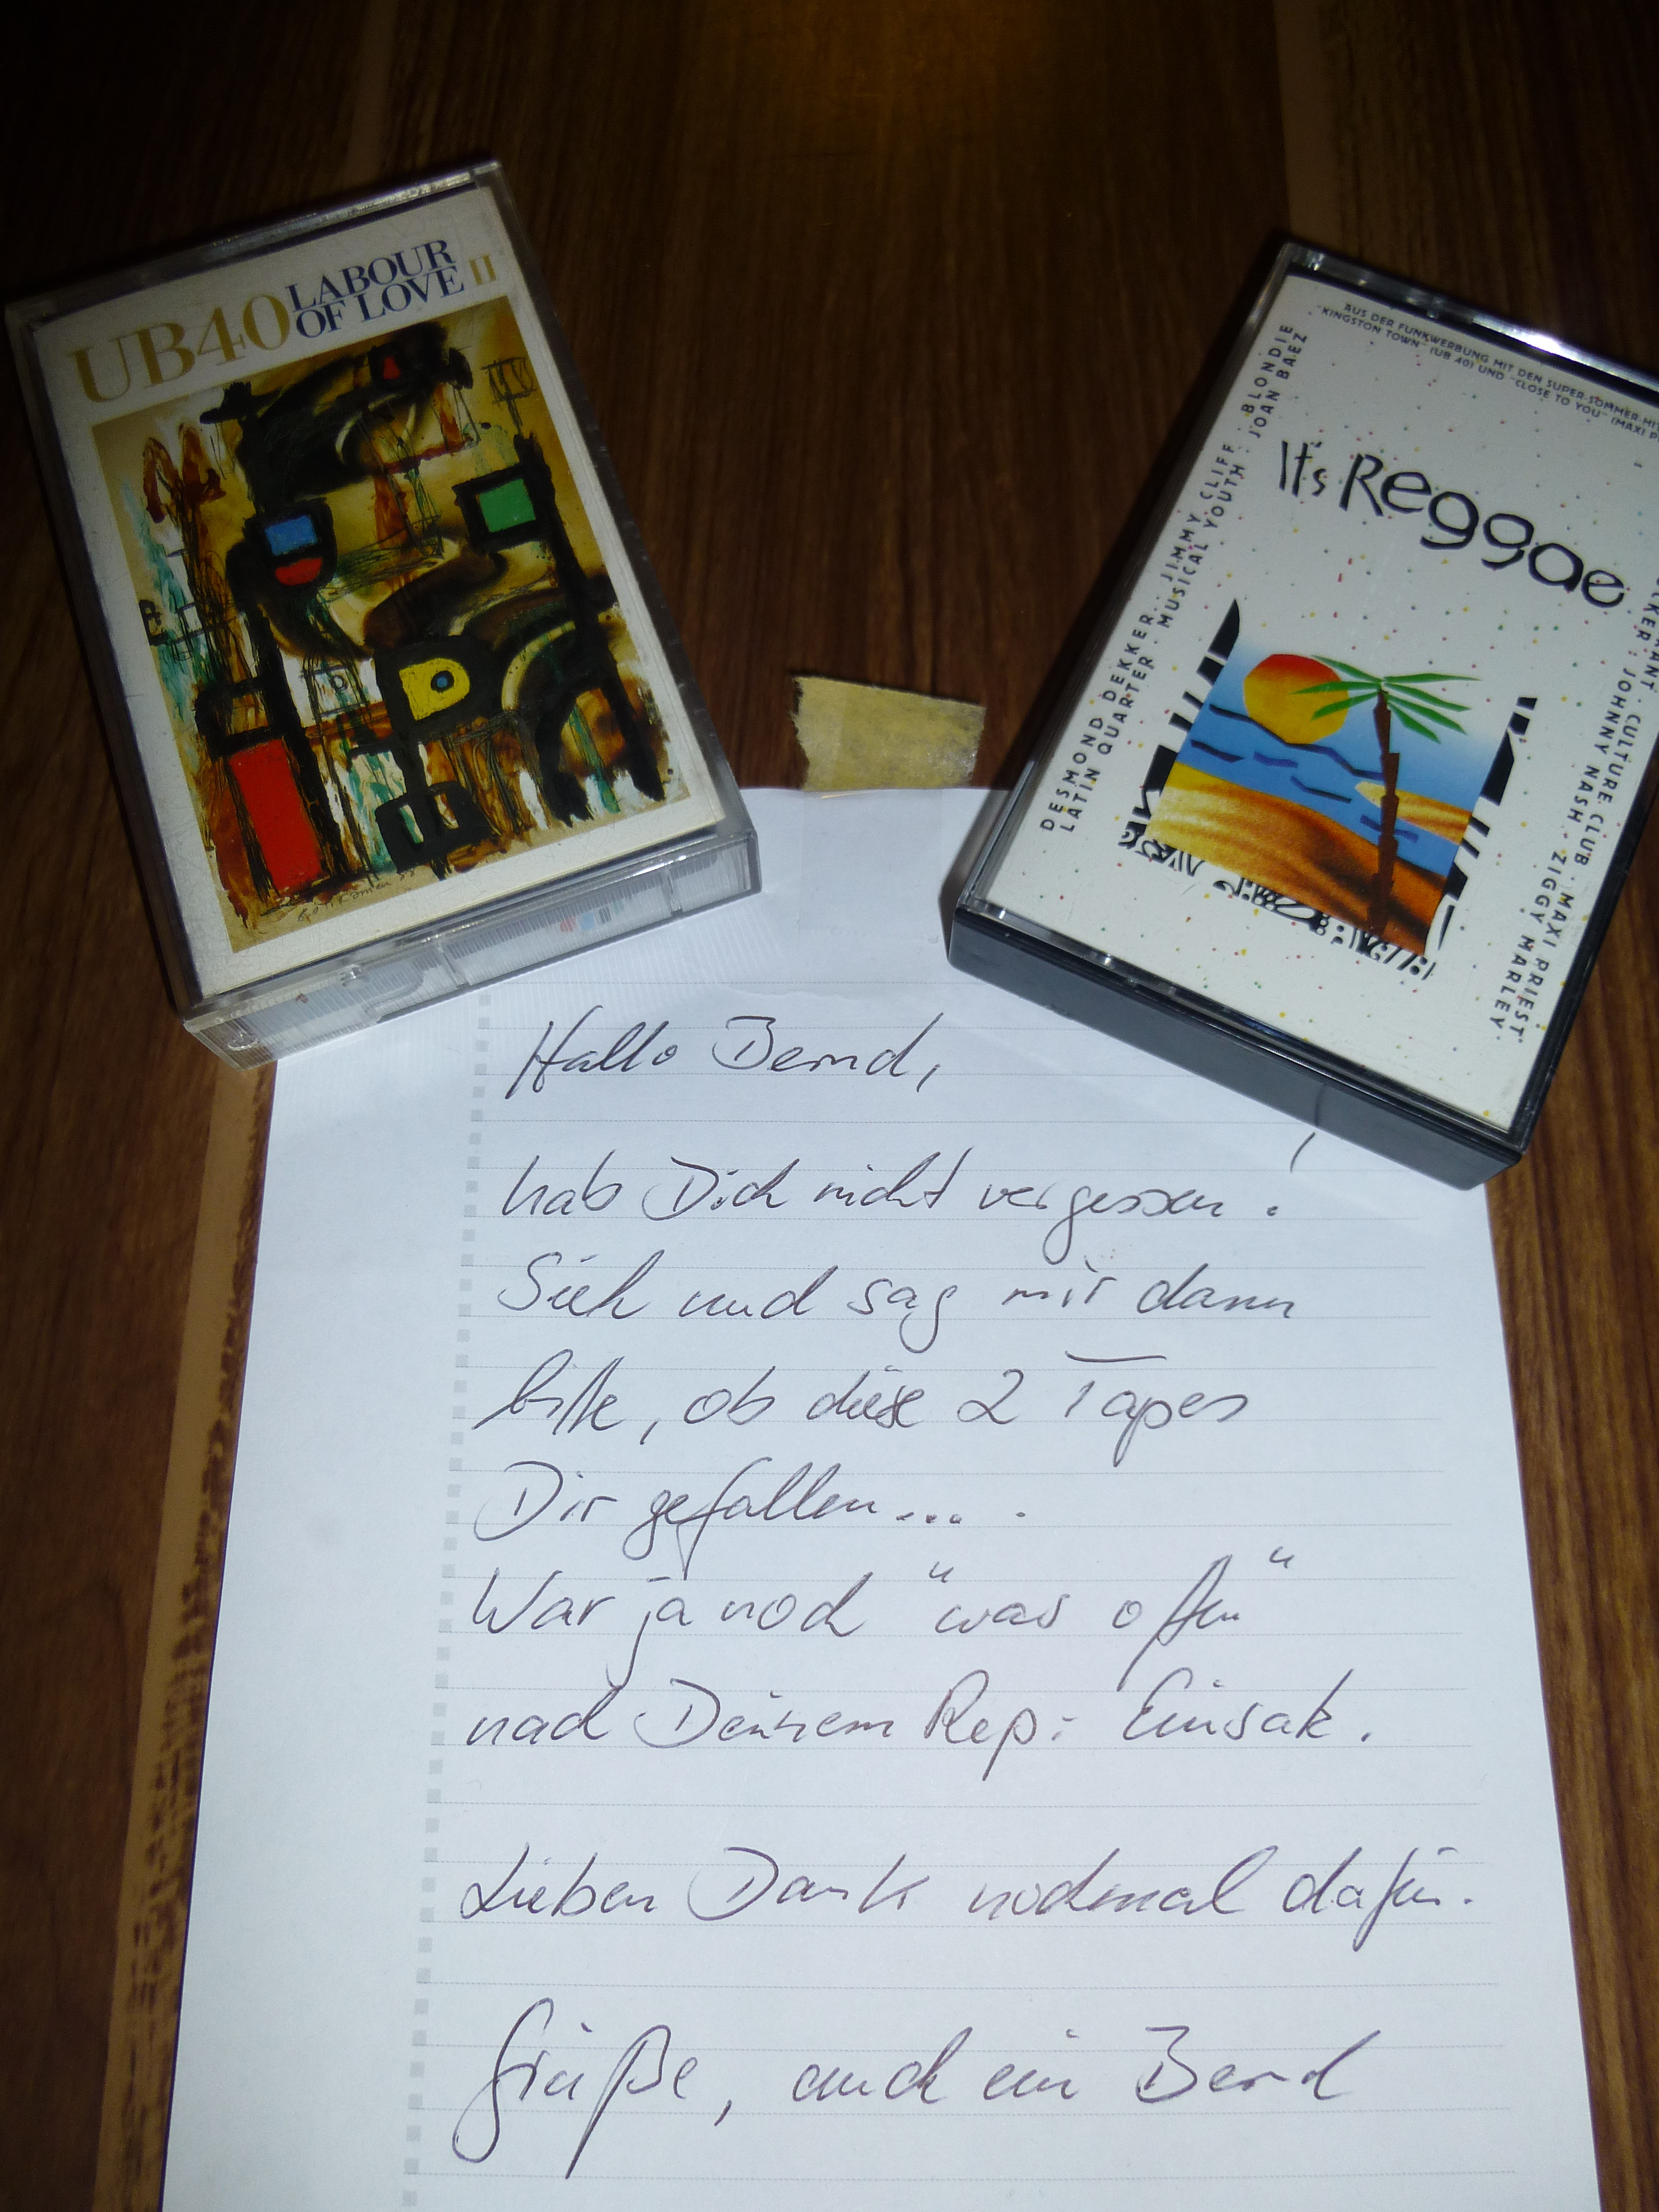 UB40 LABOUR
OF LOVE II
AUS DER FUNKWERBUNG MIT DEN SUPER-SOMMER-HIT
"KINGSTON TOWN" (UB 40) UND "CLOSE TO YOU" (MAXI P
It's Reggae
DESMOND DEKKER · JIMMY CLIFF · BLONDIE
LATIN QUARTER · MUSICAL YOUTH · JOAN BAEZ
CULTURE CLUB · MAXI PRIEST
JOHNNY NASH · ZIGGY MARLEY
Hallo Bernd,
hab Dich nicht vergessen!
Sieh und sag mir dann
bitte, ob diese 2 Tapes
Dir gefallen... .
War ja noch "was offen"
nach Deinem Rep.-Einsatz.
Lieben Dank nochmal dafür.
Grüße, auch ein Bernd